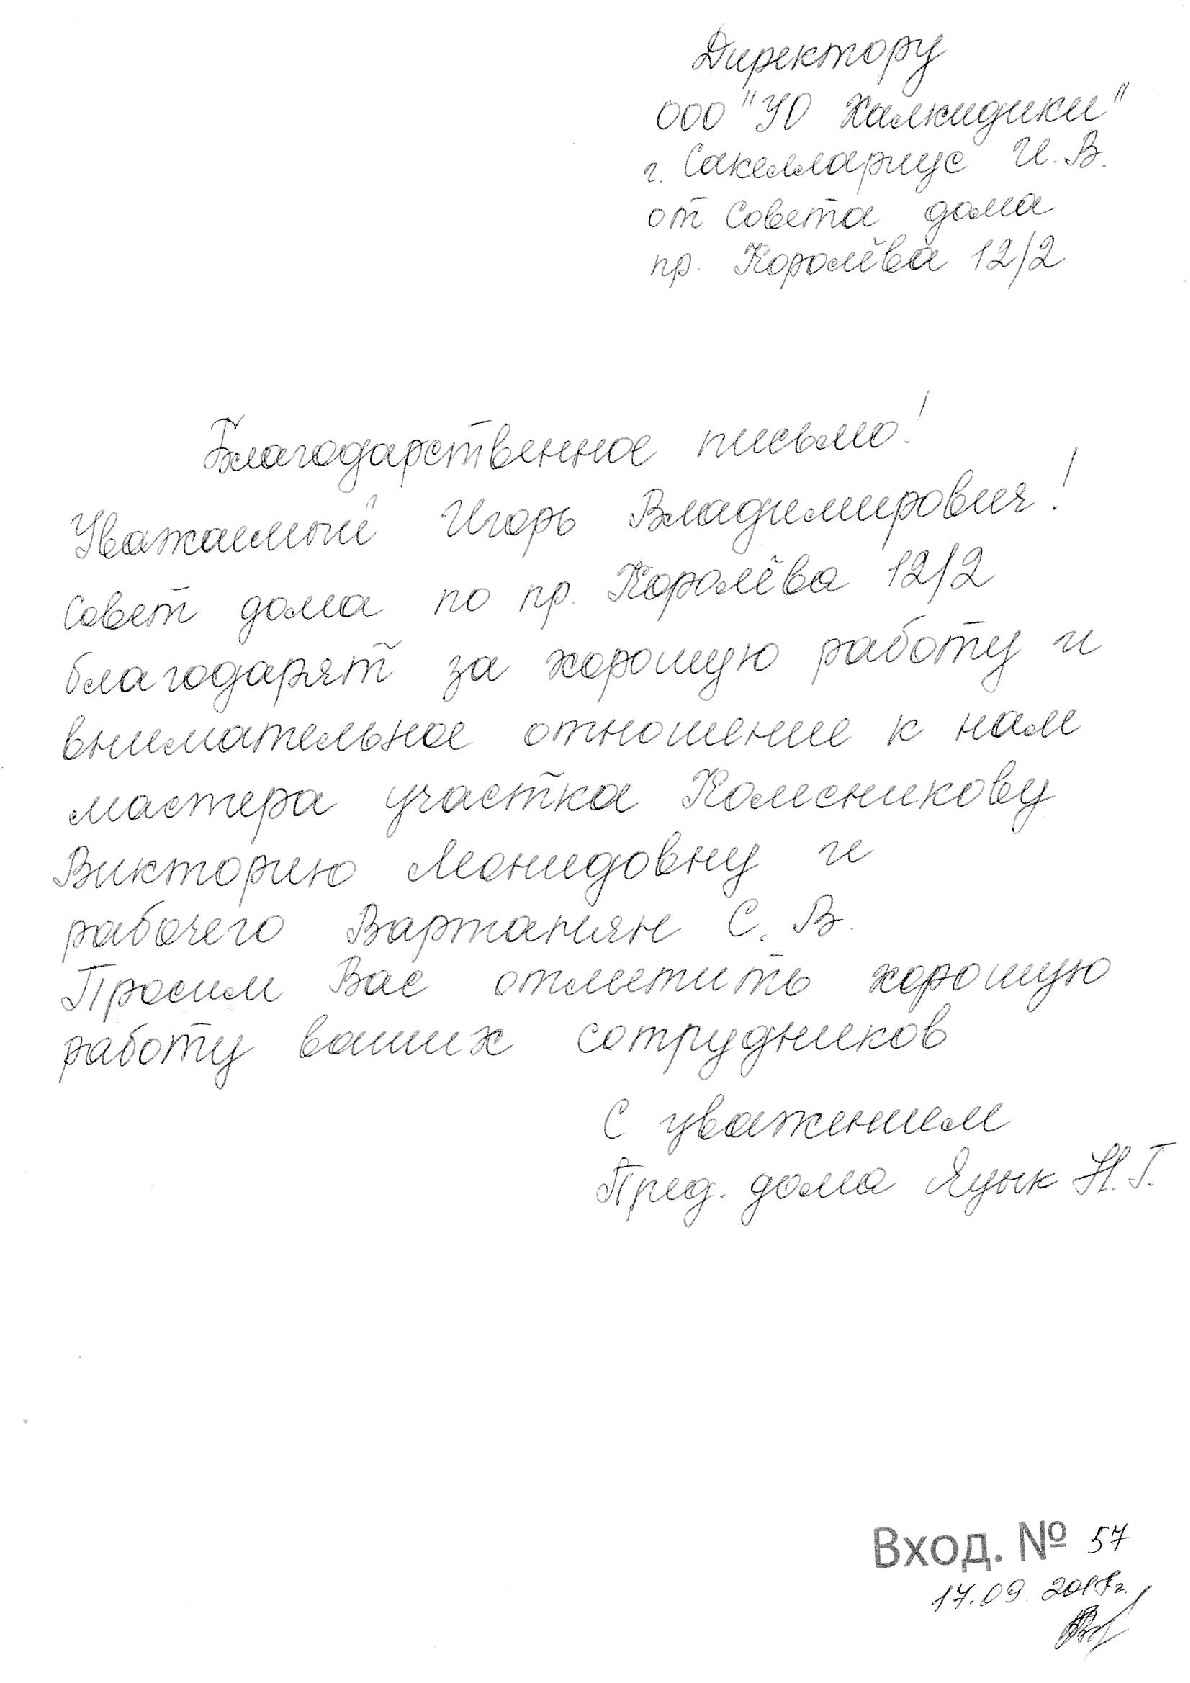 Директору
ООО "УО Халкидики"
г. Сакеллариус И. В.
от Совета дома
пр. Королёва 12/2
Благодарственное письмо!
Уважаемый Игорь Владимирович!
Совет дома по пр. Королёва 12/2
благодарят за хорошую работу и
внимательное отношение к нам
мастера участка Колесникову
Викторию Леонидовну и
рабочего Вартанян С. В.
Просим Вас отметить хорошую
работу ваших сотрудников
С уважением
Пред. дома Язык Н.Г.
Вход. № 57
17.09.